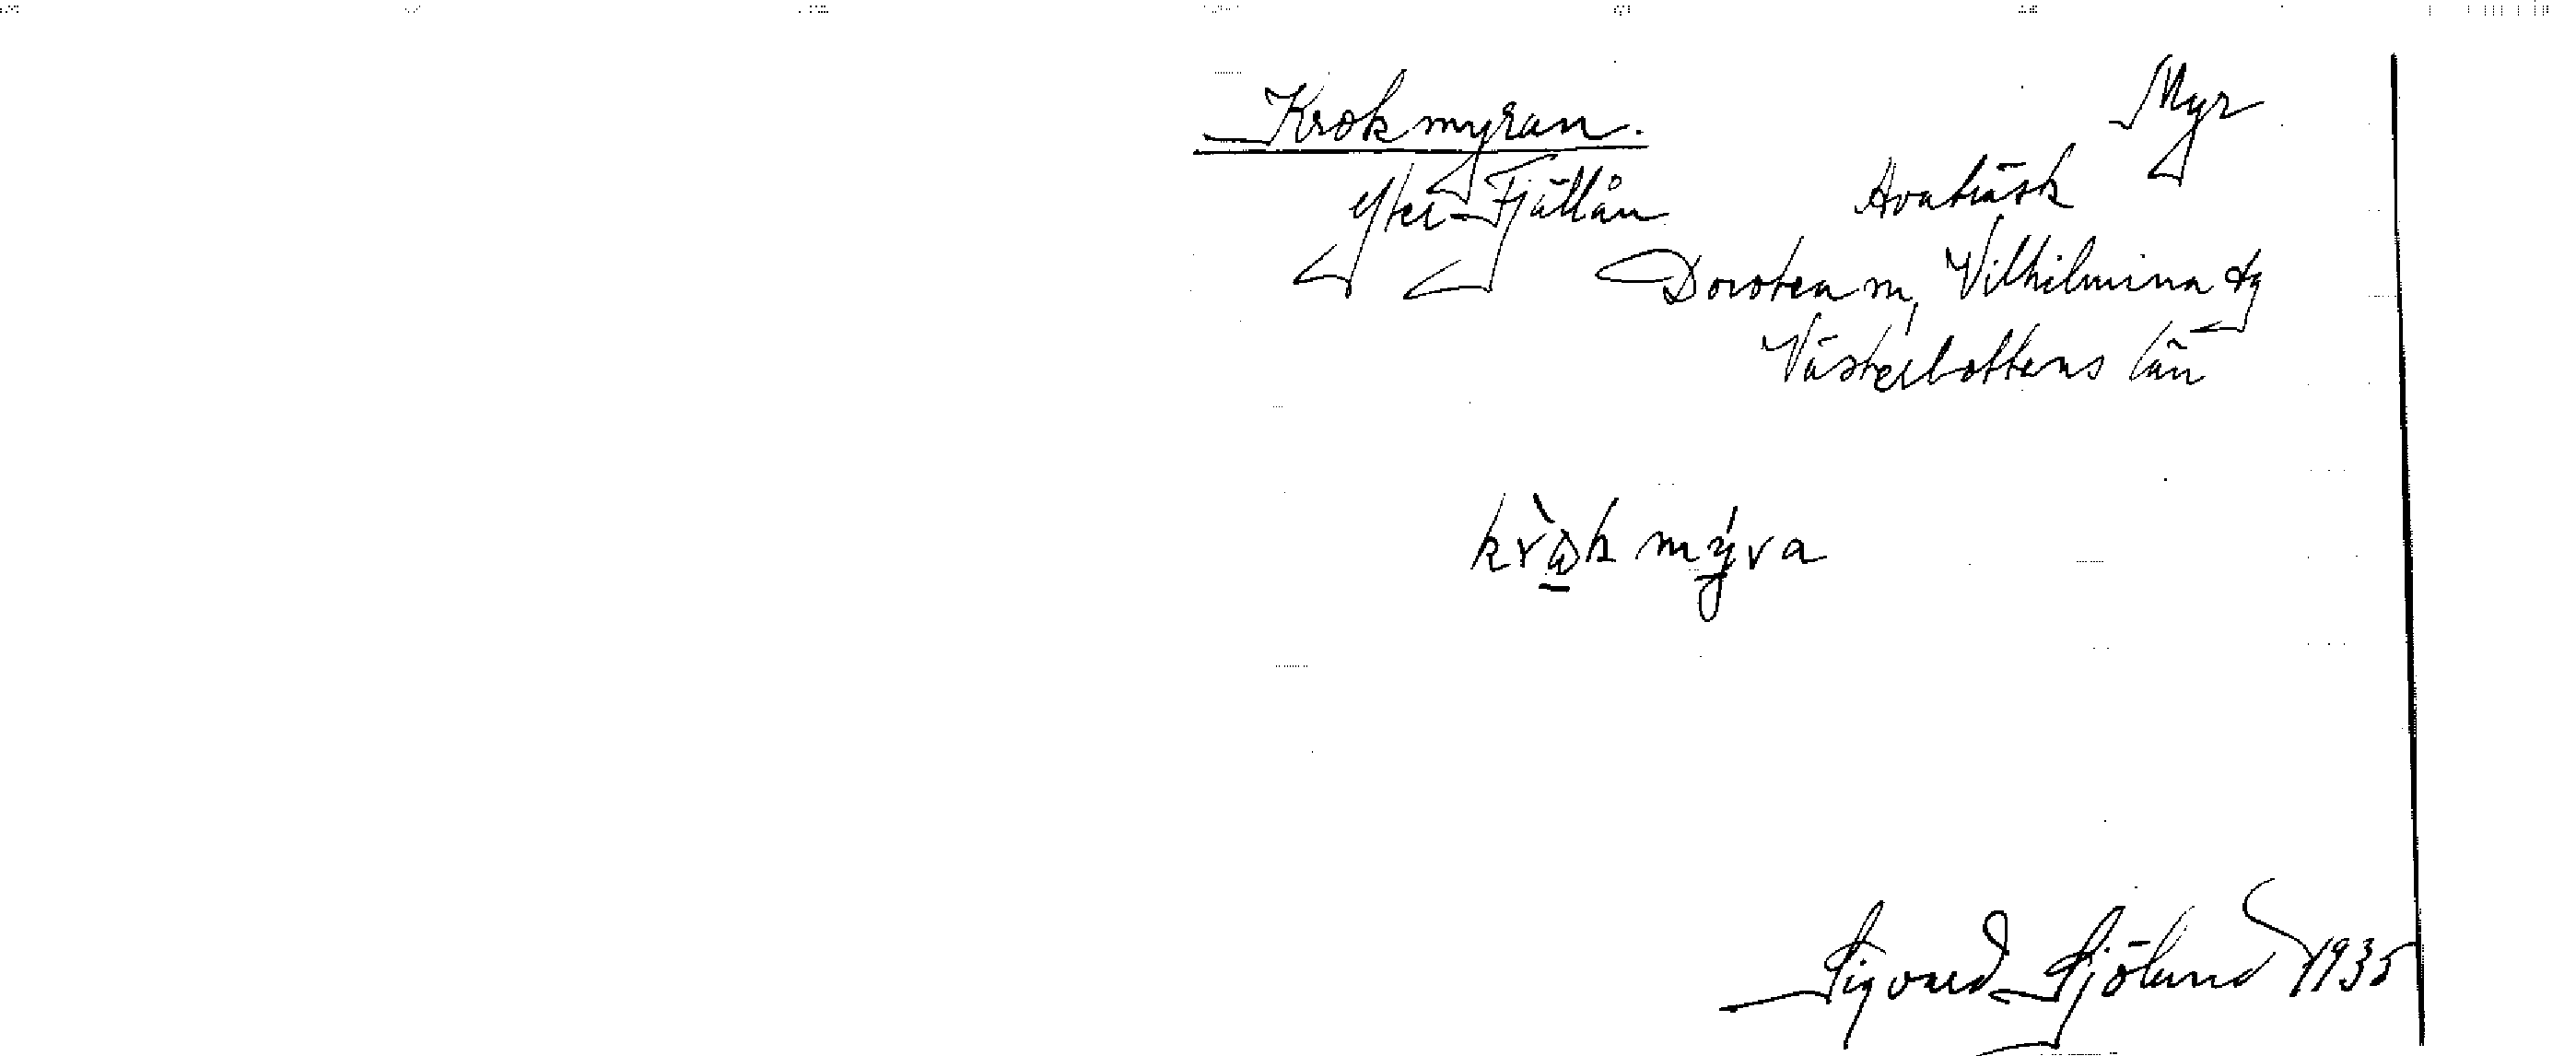 Krokmyran. Myr
Ytter-Fjällån Avaträsk
Dorotea m, Vilhilmina tg
Västerbottens län
kràkmýra
Sigvard Sjölund 1935